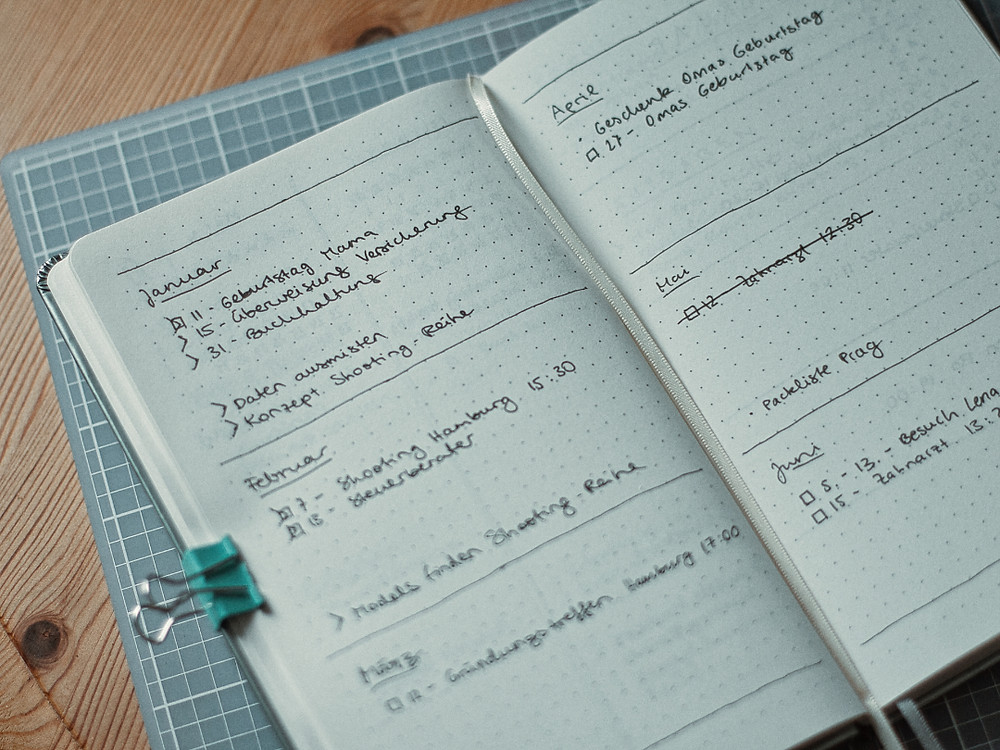 Januar
11 - Geburtstag Mama
> 15 - Überweisung Versicherung
> 31 - Buchhaltung
> Daten ausmisten
> Konzept Shooting-Reihe
Februar
7 - Shooting Hamburg 15:30
15 - Steuerberater
> Models finden Shooting-Reihe
März
12 - Gründungstreffen Hamburg 17:00
April
· Geschenk Omas Geburtstag
27 - Omas Geburtstag
Mai
12 - Zahnarzt 12:30
· Packliste Prag
Juni
8. - 13. - Besuch Lena
15 - Zahnarzt